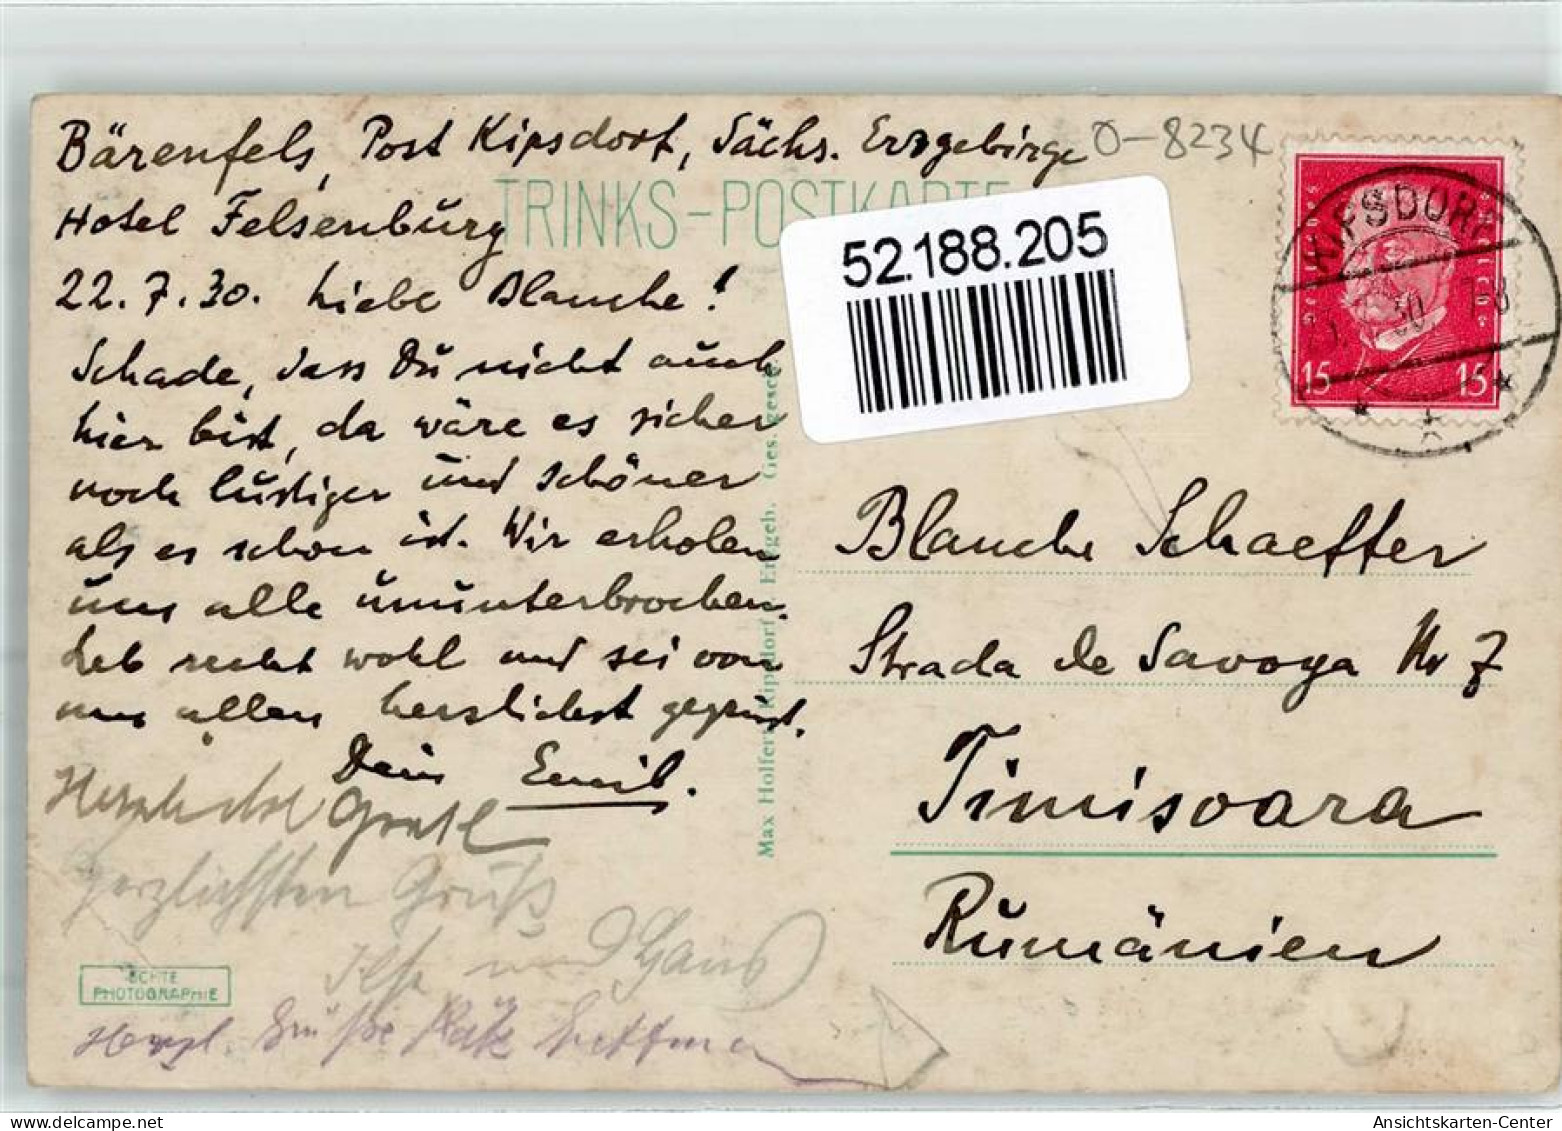 Bärenfels, Post Kipsdorf, Sächs. Erzgebirge 0-8234
TRINKS-POSTKARTE
Hotel Felsenburg
22.7.30. Liebe Blanche!
Schade, dass Du nicht auch
hier bist, da wäre es sicher
noch lustiger und schöner
als es schon ist. Wir erholen
uns alle ununterbrochen.
Leb recht wohl und sei von
uns allen herzlichst gegrüsst.
Dein Emil.
Herzlichst Gretl
Herzlichsten Gruß
Ilse und Hans
Herzl. Grüße Käte
ECHTE
PHOTOGRAPHIE
Max Holfert, Kipsdorf i. Erzgeb. Ges. gesch.
52.188.205
KIPSDORF
30 7-8
15 15
Blanche Schaeffer
Strada de Savoya Nr 7
Timisoara
Rumänien
www.delcampe.net
Ansichtskarten-Center